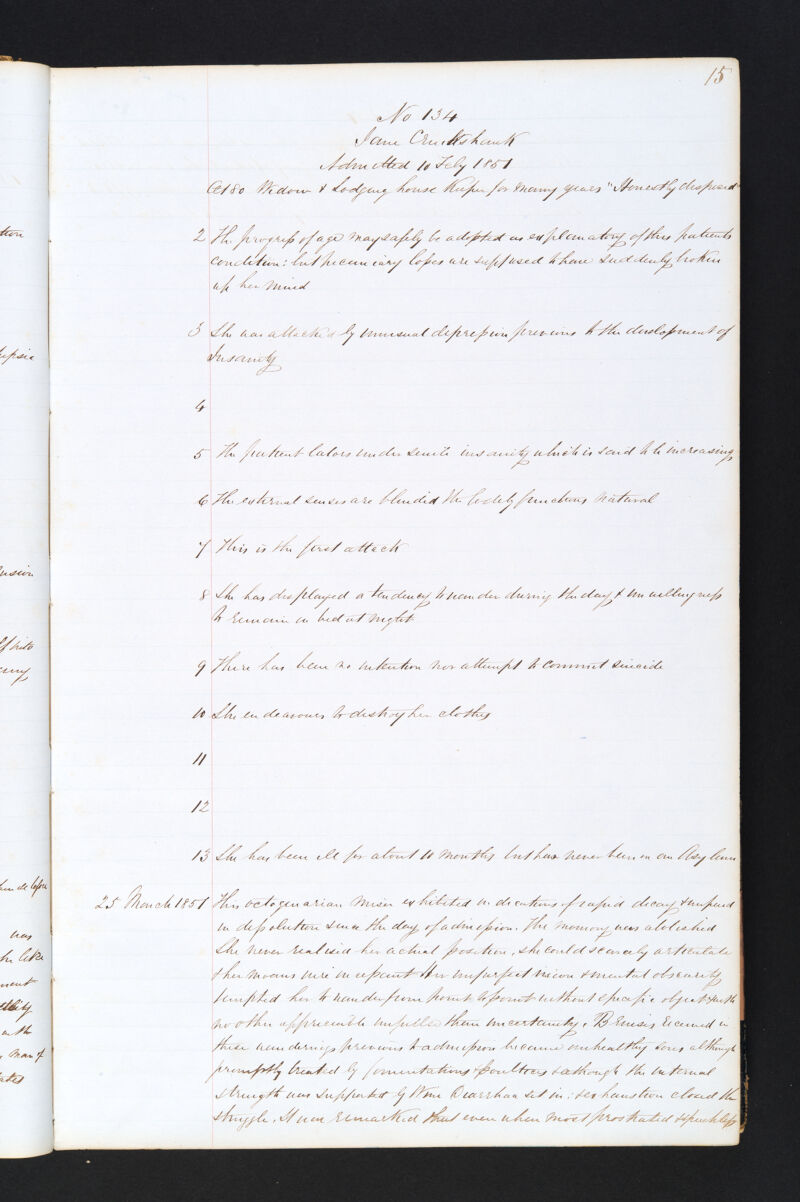 15
No 134
Jane Cruikshank
Admitted 10 Feby 1851
Aet 80 Widow & Lodging house Keeper for many years "Honestly disposed"
2 The progress of age may safely be adopted as explanatory of this patients
condition: but pecuniary losses are supposed to have suddenly broken
up her mind
3 She was attacked by unusual depression previous to the development of
Insanity
4
5 The patient labors under senile insanity which is said to be increasing
6 The external senses are blunted the bodily functions natural
7 This is the first attack
8 She has displayed a tendency to wander during the day & unwillingness
to remain in bed at night
9 There has been no intention nor attempt to commit suicide
10 She endeavours to destroy her clothes
11
12
13 She has been ill for about 10 months but has never been in an Asylum
25 March 1851 This octogenarian exhibited indications of rapid decay &
in dissolution since the day of admission. The memory was abolished
She never realised her actual position, she could scarcely articulate
& her moans were incessant. Her imperfect vision & mental obscurity
tempted her to wander from point to point without specific object & with
no other appreciable impulse than uncertainty. Bruises received in
these wanderings previous to admission became unhealthy sores although
promptly treated by fomentations poultices & although the internal
strength was supported by Wine Diarrhoea set in: & exhaustion closed the
struggle. It was remarked that even when most prostrated & speechless